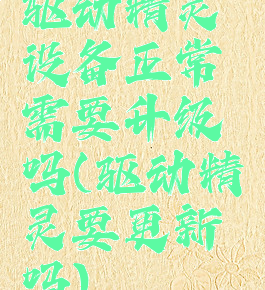 驱动精灵
设备正常
需要升级
吗(驱动精
灵要更新
吗)